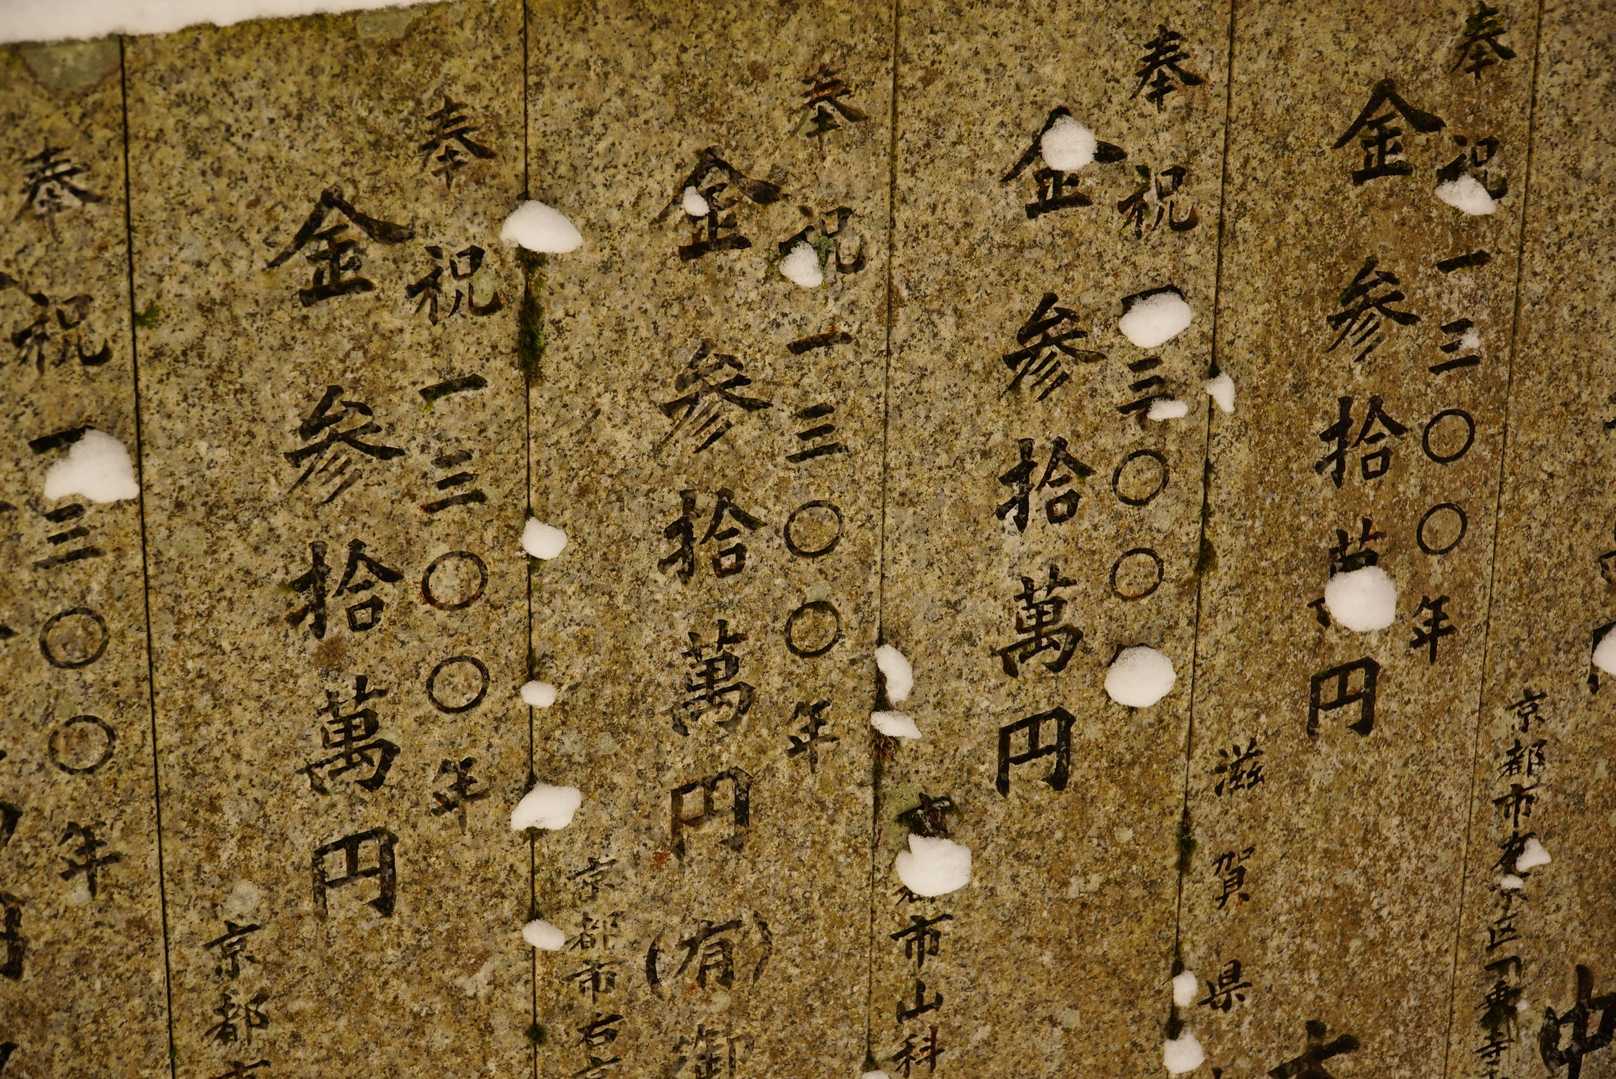 中
京都市左京区一乗寺
奉祝一三〇〇年
金参拾萬円
滋賀県
奉祝一三〇〇
金参拾萬円
市山科
奉祝一三〇〇年
金参拾萬円
(有)御
京都市右京
奉祝一三〇〇年
金参拾萬円
京都市
奉祝一三〇〇年
円